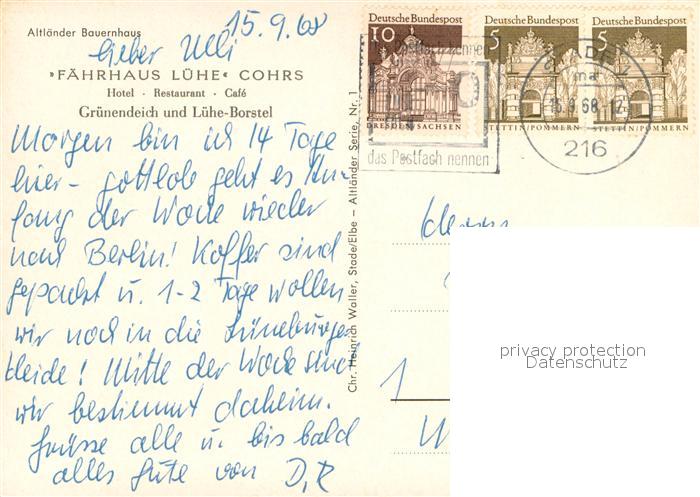 Altländer Bauernhaus
15.9.68
Lieber Ulli
»FÄHRHAUS LÜHE« COHRS
Hotel · Restaurant · Café
Grünendeich und Lühe-Borstel
Morgen bin ich 14 Tage
hier – gottlob geht es An-
fang der Woche wieder
nach Berlin! Koffer sind
gepackt u. 1-2 Tage wollen
wir noch in die Lüneburger
Heide! Mitte der Woche sind
wir bestimmt daheim.
Grüsse alle u. bis bald
alles Gute von D, R
Chr. Heinrich Woller, Stade/Elbe – Altländer Serie, Nr. 1
Deutsche Bundespost
10
DRESDEN/SACHSEN
Deutsche Bundespost
5
STETTIN/POMMERN
Deutsche Bundespost
5
STETTIN/POMMERN
Postfach nennen
das Postfach nennen
STADE
ma
15.9.68-17
216
Herrn
1
privacy protection
Datenschutz